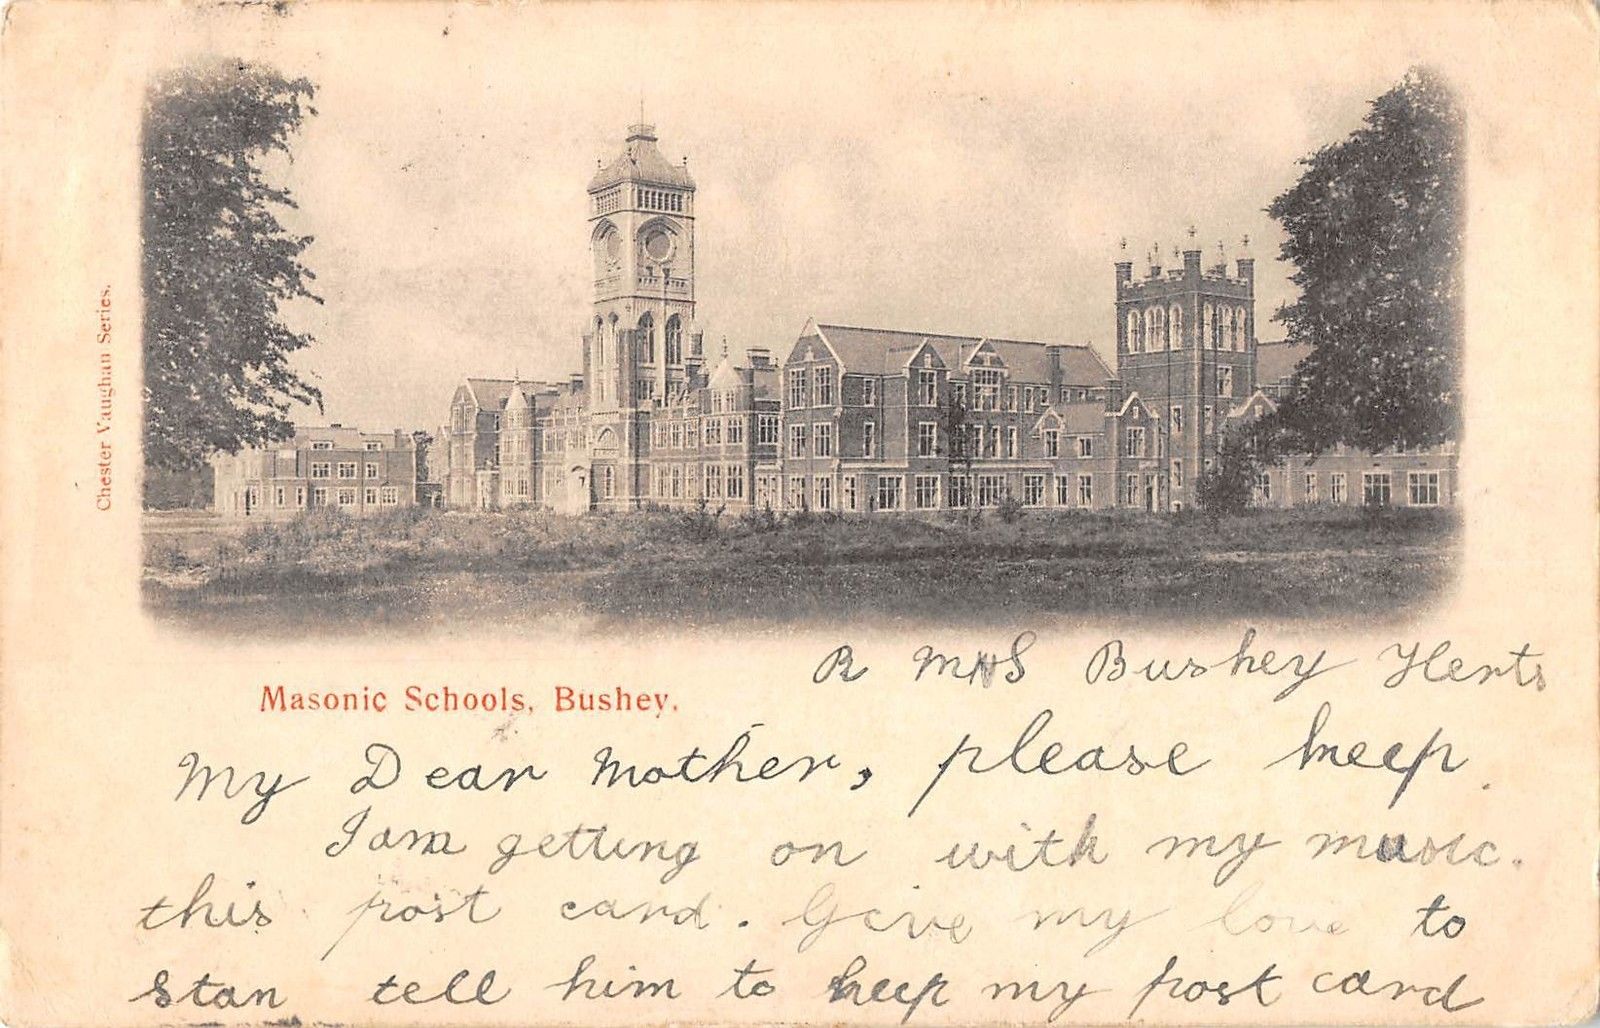 Chester Vaughan Series.
Masonic Schools, Bushey.
R MHS Bushey Herts
My Dear Mother, please keep
I am getting on with my music.
this post card. Give my love to
Stan tell him to keep my post card